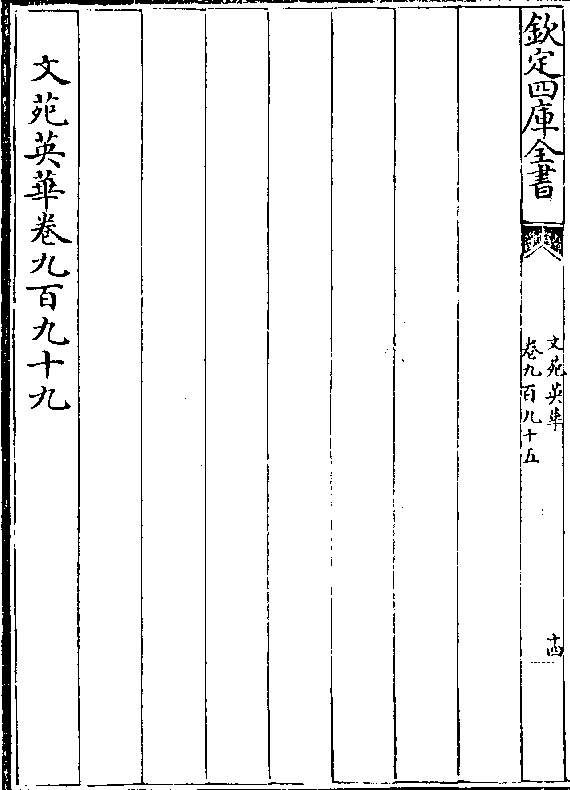 欽定四庫全書
文苑英華
卷九百九十五
十四
文苑英華卷九百九十九